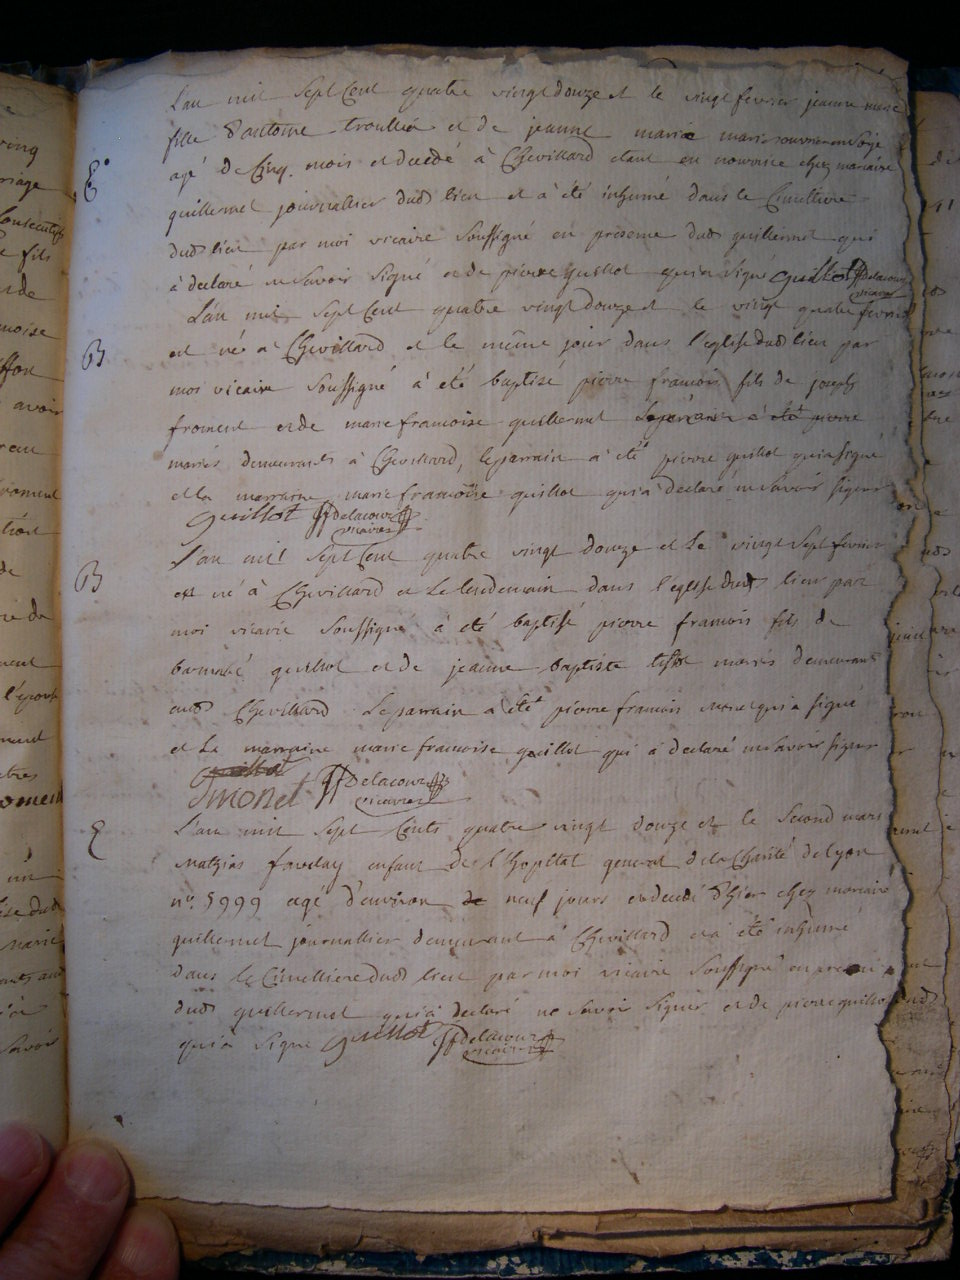 L'an mil sept Cent quatre vingt douze et le vingt fevrier jeanne marie
fille d'antoine trouillet et de jeanne marie mariés ouvrier en Soye
agé de Cinq mois et decedé à Chevillard etant en nourrice chez mariaire
E.
guillermet journallier dud lieu et a été inhumé dans le Cimettiere
dud lieu par moi vicaire Soussigné en presence dud guillermet qui
à declaré ne Savoir Signé et de pierre guillot qui a Signé guillot ff delacour
vicaire
L'an mil Sept Cent quatre vingt douze et le vingt quatre fevrier
B
est né a Chevillard et le même jour dans l'eglise dud lieu par
moi vicaire Soussigné à été baptisé pierre francois fils de joseph
froment et de marie francoise guillermet Le parrain a été pierre
mariés demeurants à Chevillard, le parrain a été pierre guillot qui a Signé
et la marraine marie francoise guillot qui a declaré ne Savoir Signer
guillot ff delacour
vicaire
L'an mil Sept Cent quatre vingt douze et Le vingt Sept fevrier
B
est né à Chevillard et Le lendemain dans l'eglise dud lieu par
moi vicaire Soussigné à été baptisé pierre francois fils de
barnabé guillot et de jeanne baptiste mariés demeurant
aud Chevillard Le parrain a été pierre francois monet qui a signé
et La marraine marie francoise guillot qui a declaré ne Savoir Signer
guillot
monet ff Delacour
vicaire
E
L'an mil Sept Cents quatre vingt douze et le Second mars
Mathias enfant de l'hopital general de la Charité de lyon
n°. 5999 agé d'environ de neuf jours est decedé d'hier chez mariaire
guillermet journallier demeurant à Chevillard et a été inhumé
dans le Cimettiere dud lieu par moi vicaire Soussigné en presence
dud guillermet qui a declaré ne Savoir Signer et de pierre guillot
qui a Signé guillot ff delacour
vicaire